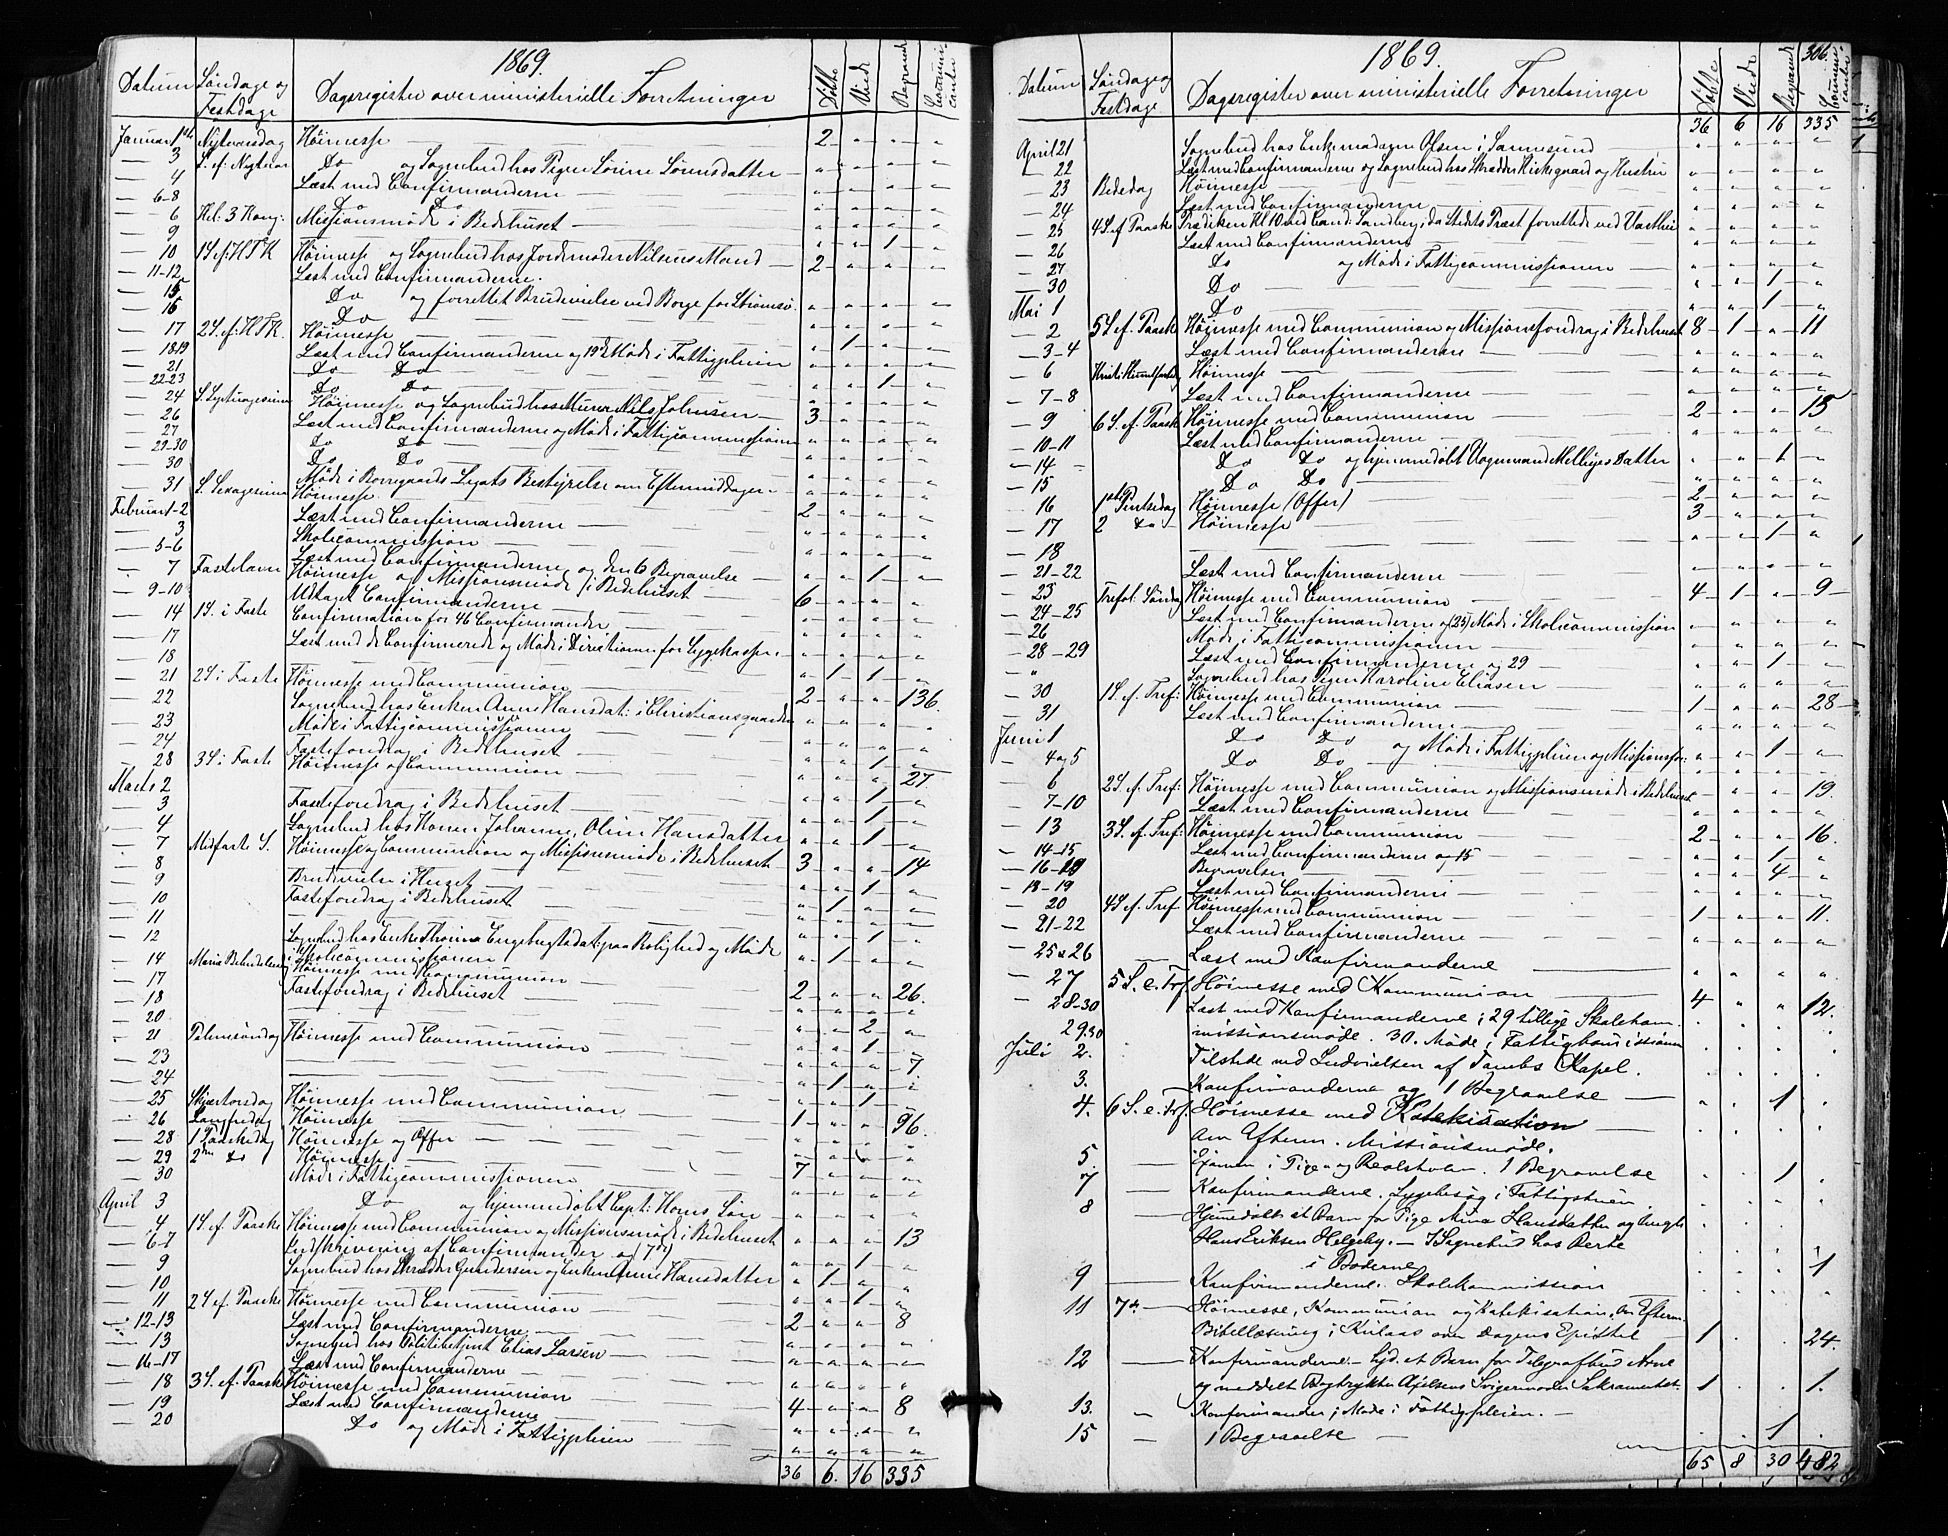 1869.
Datum Søndage og Festdage Dagsregister over ministerielle Forretninger Døbte Viede Begravede Communicanter
Januar 1ste Nytaarsdag Høimesse 2 " " "
3 S. ef: Nytaar Do og Sognebud hos Pigen Sørine Sørensdatter " " " "
4 Læst med Confirmanderne " " " "
6-8 Do Do " " " "
6 Hel: 3 Kong: Missionsmøde i Bedehuset " " " "
9 " " 1 "
10 1 S. ef: H3K Høimesse og Sognebud hos Jordemoder Nilsens Mand 2 " " "
11-12 Læst med Confirmanderne.
15 Do og forrettet Brudevielse ved Borge for Strømsø " " " "
16 Do
17 2 S. ef. H3K. Høimesse
18 19 Læst med Confirmanderne og 19de Møde i Fattigpleien
21 Do Do
22-23 Do Do
24 S. Septuagesima Høimesse og Sognebud hos Murer Nils Johnsen 3 " " "
26 Læst med Confirmanderne og Møde i Fatticommissionen
27 Do Do
29-30 Do Do
30 Møde i Borregaards Legats Bestyrelse om Eftermiddagen
31 S. Sexagesima Høimesse. 2
Februar 1-2 Læst med Confirmanderne
3 Skolecommission
5-6 Læst med Confirmanderne og den 6 Begravelse 1
7 Fastelavn Høimesse og Missionsmøde i Bedehuset 6
9-10 Udtaget Confirmanderne
14 1 S. i Faste Confirmation for 46 Confirmander
17 Læst med de Confirmerede og Møde i Directionen for Sygekassen
18
21 2 S i Faste Høimesse med Communion 2 " " 136.
22 Sognebud hos Enken Anne Hansdat: i Christiansgaarden
23 Møde i Fatticommissionen
24 Fasteforedrag i Bedehuset
28 3 S i Faste Høimesse og Communion 27.
Marts 2
3 Fasteforedrag i Bedehuset
4 Sognebud hos Konen Johanne, Oline Hansdatter
7 Midfaste S. Høimesse og Communion og Missionsmøde i Bedehuset 3 " " 14
8 Brudevielse i Huset
9 Fasteforedrag i Bedehuset
10
11
12 Sognebud hos Enke Thorine Engebregtsdat: paa Rolighed og Møde i Skolecommissionen
14 Maria Bebudelse Høimesse med Communion 2 " " 26.
17 Fasteforedrag i Bedehuset
18
20
21 Palmesøndag Høimesse med Communion 7
23
24
25 Skjærtorsdag Høimesse med Communion 1 " " 96.
26 Langfredag Høimesse
28 1 Paaskedag Høimesse og Offer
29 2den do Høimesse 7
30 Møde i Fatticommissionen
April 3 Do og hjemmedøbt Capt: Horns Søn
4 1 S. ef. Paaske Høimesse med Communion og Missionsmøde i Bedehuset 13
6-7 Indskrivning af Confirmander og 7de
9 Sognebud hos Skrædder Gundersen og Enken Anne Hansdatter
10
11 2 S ef. Paaske Høimesse med Communion 2 " " 8
12-13 Læst med Confirmanderne
13 Sognebud hos Politibetjent Elias Larsen
16-17 Læst med Confirmanderne
18 3 S. ef. Paaske Høimesse med Communion 4 " " 8
19 Læst med Confirmanderne
20 Do og Møde i Fattigpleien
36 6. 16 335
306.
1869.
Datum Søndage og Festdage Dagsregister over ministerielle Forretninger Døbte Viede Begravede Communicanter
36 6 16 335
April 21 Sognebud hos Enkemadame Olsen i Sannesund
22 Læst med Confirmanderne og Sognebud hos Skrædder Kirkegaard og Hustru
23 Bededag Høimesse
24 Læst med Confirmanderne
25 4 S. ef Paaske Prædiken Kl 10 ved Cand: Sandberg, da Stedets Præst forrettede ved Varteig
26 Læst med Confirmanderne
27 Do og Møde i Fatticommissionen
30 Do 1
Mai 1 Do 1
2 5 S ef. Paaske Høimesse med Communion og Missionsforedrag i Bedehuset 8 1 " 11
3-4 Læst med Confirmanderne
6 Kristi Himmelfartsdag Høimesse
7-8 Læst med Confirmanderne
9 6 S. ef. Paaske Høimesse med Communion 2 " " 15
10-11 Læst med Confirmanderne
14 Do Do og hjemmedøbt Vognmand Mellbyes Datter 1
15 Do Do
16 1ste Pintsedag Høimesse (Offer) 2
17 2 do Høimesse 3
18 1
21-22 Læst med Confirmanderne
23 Trefol: Søndag Høimesse med Communion 4 1 " 9
24-25 Læst med Confirmanderne og (25) Møde i Skolecommission
26 Møde i Fatticommissionen
28-29 Læst med Confirmanderne og 29 1
" Sognebud hos Pigen Karoline Eliasen
30 1 S. ef. Tref: Høimesse med Communion 1 " " 28
31 Læst med Confirmanderne
Juni 1 Do Do og Møde i Fattigpleien og Missionsfor: 1
4 og 5 Do Do
6 2 S. ef. Tref: Høimesse med Communion og Missionsmøde i Bedehuset 19.
7-10 Læst med Confirmanderne
13 3 S. ef. Tref: Høimesse med Communion 2 " " 16.
14-15 Læst med Confirmanderne og 15 1
16-19 Begravelser 4
18-19 Læst med Confirmanderne
20 4 S ef. Tref Høimesse med Communion 1 " " 11.
21-22 Læst med Confirmanderne
25 & 26 Læst med Konfirmanderne
27 5 S. e. Trf. Høimesse med Kommunion 4 " " 12.
28-30 Læst med Konfirmanderne; 29 tillige Skolekom
29.30 missionsmøde. 30. Møde i Fattigkommissionen
Juli 2. Tilstede ved Indvielsen af Tombs Kapel.
3. Konfirmanderne og 1 Begravelse 1
4. 6 S. e. Trf. Høimesse med Katekisation
Om Efterm. Missionsmøde.
5. Examen i Pige- og Realskolen. 1 Begravelse 1
7 Konfirmanderne. Sygebesøg i Fattigstuen
8 Hjemmedøbt et Barn for Pige Anna Hansdatter og Ungk
Hans Eriksen Helgeby. I Sognebud hos Berte
i Boderne 1
9 Konfirmanderne. Skolekommission
11 7de Høimesse, Kommunion og Katekisation. Om Efterm
Bibellæsning i Kulaas over Dagens Epistel 1 . . 24.
12 Konfirmanderne. Hjd. et Barn for Telegrafbud Arne
og meddelt Bogtrykker Axelsens Svigermoder Sakramentet. 1 . . 1.
13. Konfirmander; Møde i Fattigpleien.
15 1 Begravelse 1
65 8 30 482